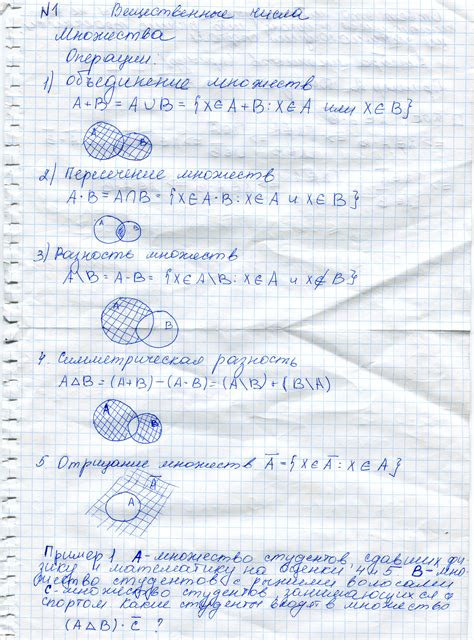 N1 Вещественные числа
Множества
Операции.
1) Объединение множеств
A+B = A∪B = {x∈A+B: x∈A или x∈B}
A B
2) Пересечение множеств
A·B = A∩B = {x∈A·B: x∈A и x∈B}
A B
3) Разность множеств
A\B = A-B = {x∈A\B: x∈A и x∉B}
A B
4. Симметрическая разность
A△B = (A+B)-(A·B) = (A\B)+(B\A)
A B
5. Отрицание множеств Ā={x∈Ā: x∈A}
Ā
A
Пример 1 A-множество студентов, сдавших фи
зику и математику на оценки 4 и 5 B-мно
жество студентов с рыжими волосами
C-множество студентов, занимающихся
спортом какие студенты входят в множество
(A△B)·C̄ ?